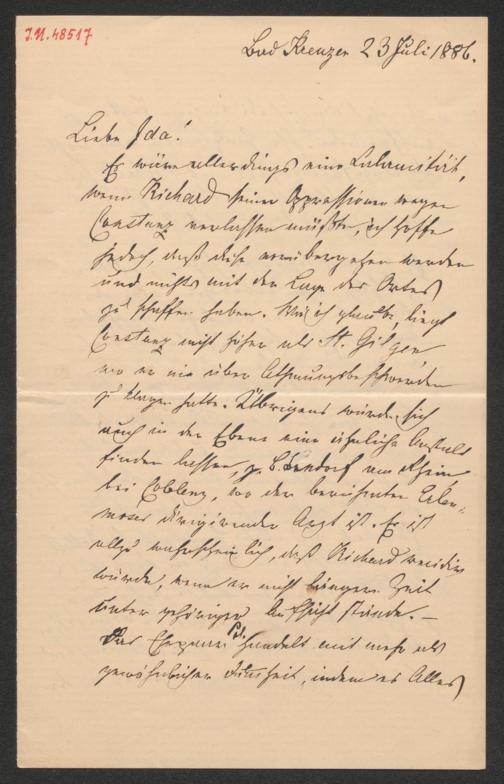 J.N. 48517
Bad Kreuzen 23 Juli 1886.
Liebe Ida!
Es wäre allerdings eine Calamität,
wenn Richard seiner Oppressionen wegen
Constanz verlassen müßte, ich hoffe
jedoch, daß diese vorübergehen werden
und nichts mit der Lage des Ortes
zu schaffen haben. Wie ich glaube, liegt
Constanz nicht höher als St. Gilgen
wo er nie über Athmungsbeschwerden
zu klagen hatte. Übrigens würde sich
auch in der Ebene eine ähnliche Anstalt
finden lassen, z. B. Bendorf am Rhein
bei Coblenz, wo der berühmte Erlen-
meyer dirigirender Arzt ist. Es ist
allzu wahrscheinlich, daß Richard recidiv
würde, wenn er nicht längere Zeit
unter gehöriger Aufsicht stände. —
Das Ehepaar handelt mit mehr als
gewöhnlicher Dummheit, indem es Alles